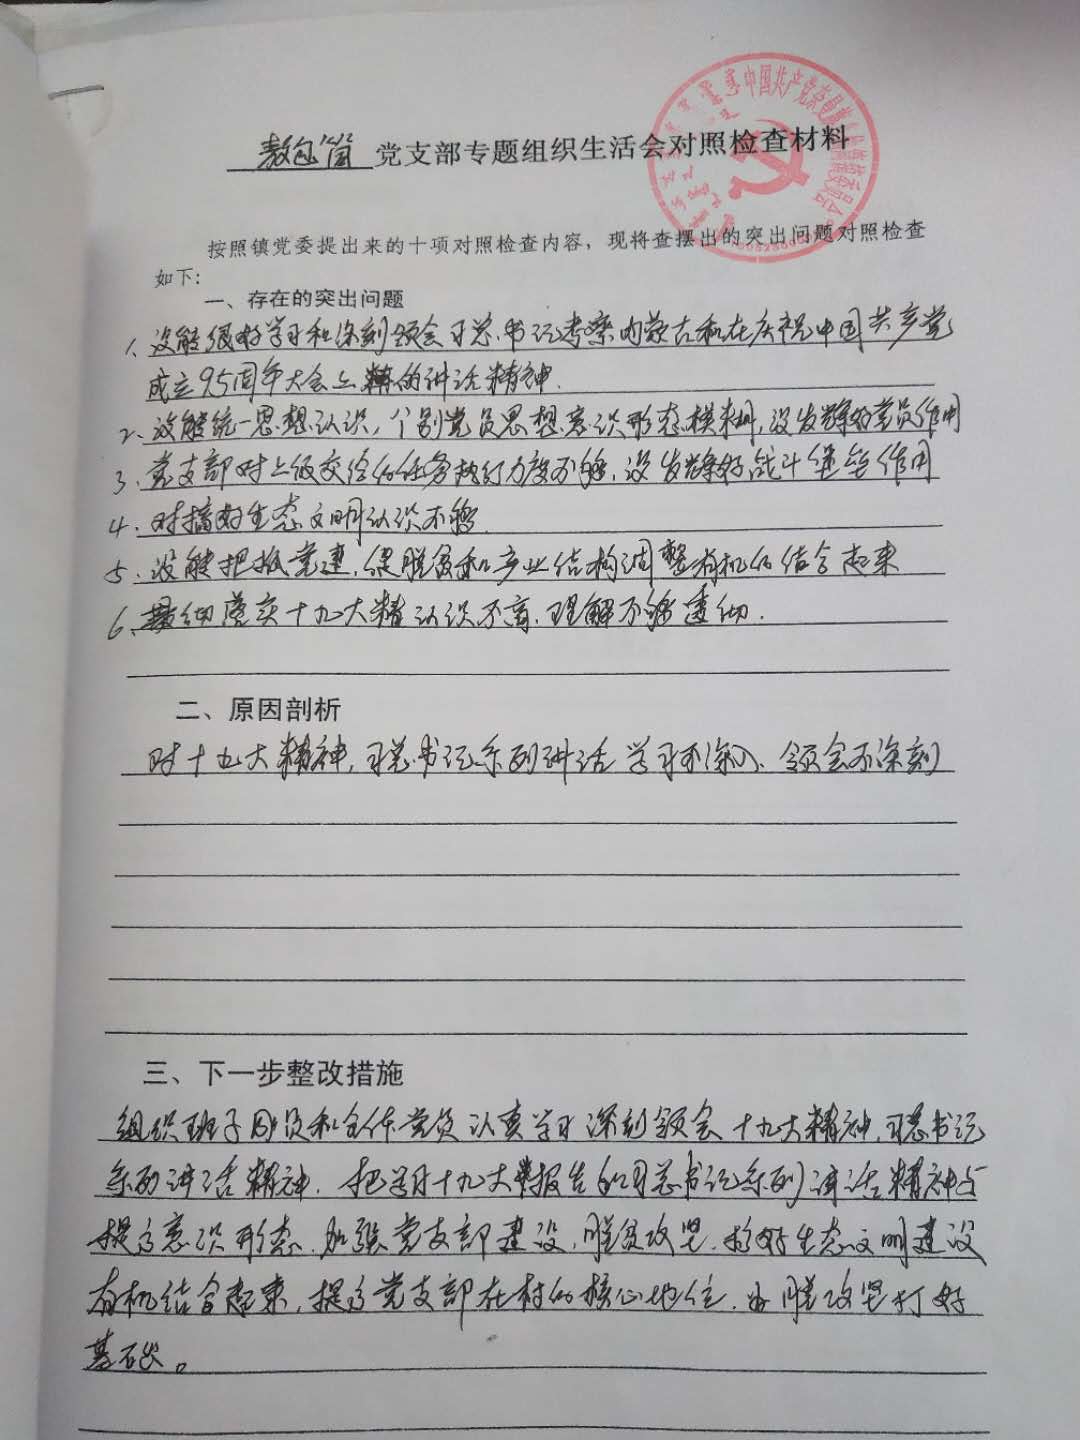 中国共产党
敖包筒 党支部专题组织生活会对照检查材料
按照镇党委提出来的十项对照检查内容，现将查摆出的突出问题对照检查
如下：
一、存在的突出问题
1、没能很好学习和深刻领会习总书记考察内蒙古和在庆祝中国共产党
成立95周年大会上的讲话精神.
2、没能统一思想认识，个别党员思想意识形态模糊，没发挥好党员作用
3、党支部对上级交给的任务执行力度不够，没发挥好战斗堡垒作用
4、对搞好生态文明认识不够
5、没能把抓党建，促脱贫和产业结构调整有机的结合起来
6、贯彻落实十九大精认识不高，理解不够透彻.
二、原因剖析
对十九大精神，习总书记系列讲话学习不深入、领会不深刻
三、下一步整改措施
组织班子成员和全体党员认真学习深刻领会十九大精神，习总书记
系列讲话精神. 把学习十九大报告和习总书记系列讲话精神与
提高意识形态，加强党支部建设，脱贫攻坚，搞好生态文明建设
有机结合起来，提高党支部在村的核心地位，为脱攻坚打好
基础。